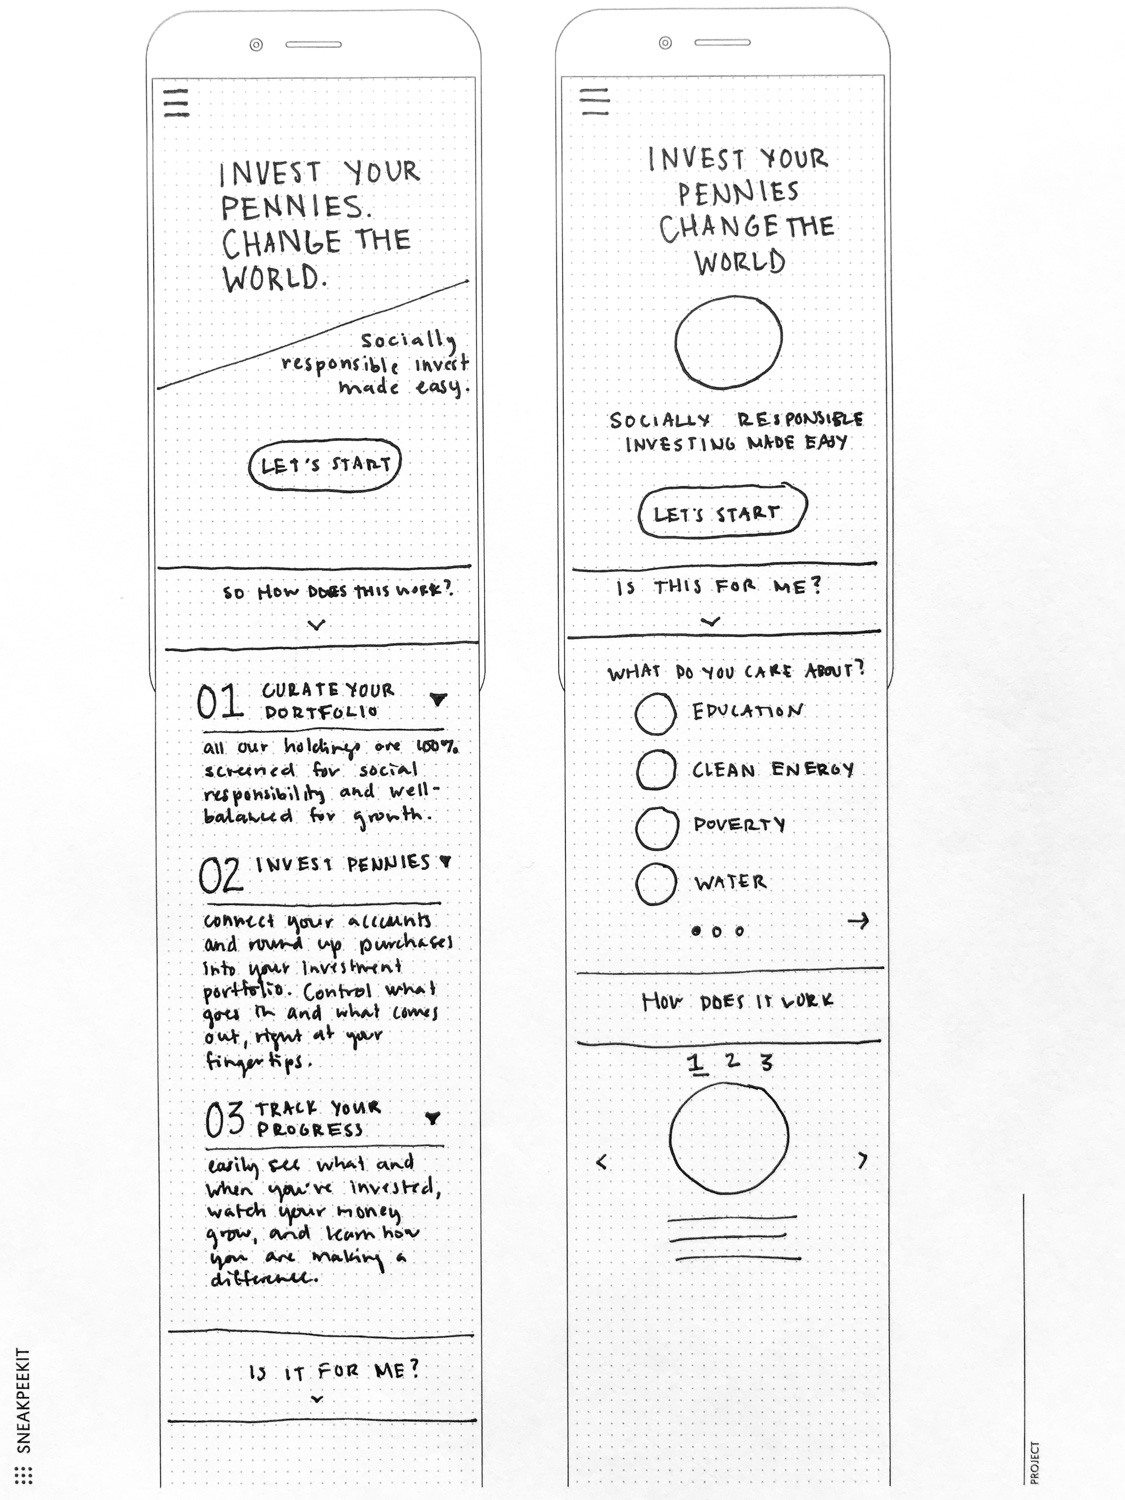 INVEST YOUR
PENNIES.
CHANGE THE
WORLD.
Socially
responsible invest
made easy.
LET'S START
SO HOW DOES THIS WORK?
01 CURATE YOUR
PORTFOLIO
all our holdings are 100%
screened for social
responsibility and well-
balanced for growth.
02 INVEST PENNIES
connect your accounts
and round up purchases
into your investment
portfolio. Control what
goes in and what comes
out, right at your
fingertips.
03 TRACK YOUR
PROGRESS
easily see what and
when you've invested,
watch your money
grow, and learn how
you are making a
difference.
IS IT FOR ME?
INVEST YOUR
PENNIES
CHANGE THE
WORLD
SOCIALLY RESPONSIBLE
INVESTING MADE EASY
LET'S START
IS THIS FOR ME?
WHAT DO YOU CARE ABOUT?
EDUCATION
CLEAN ENERGY
POVERTY
WATER
HOW DOES IT WORK
1 2 3
SNEAKPEEKIT
PROJECT